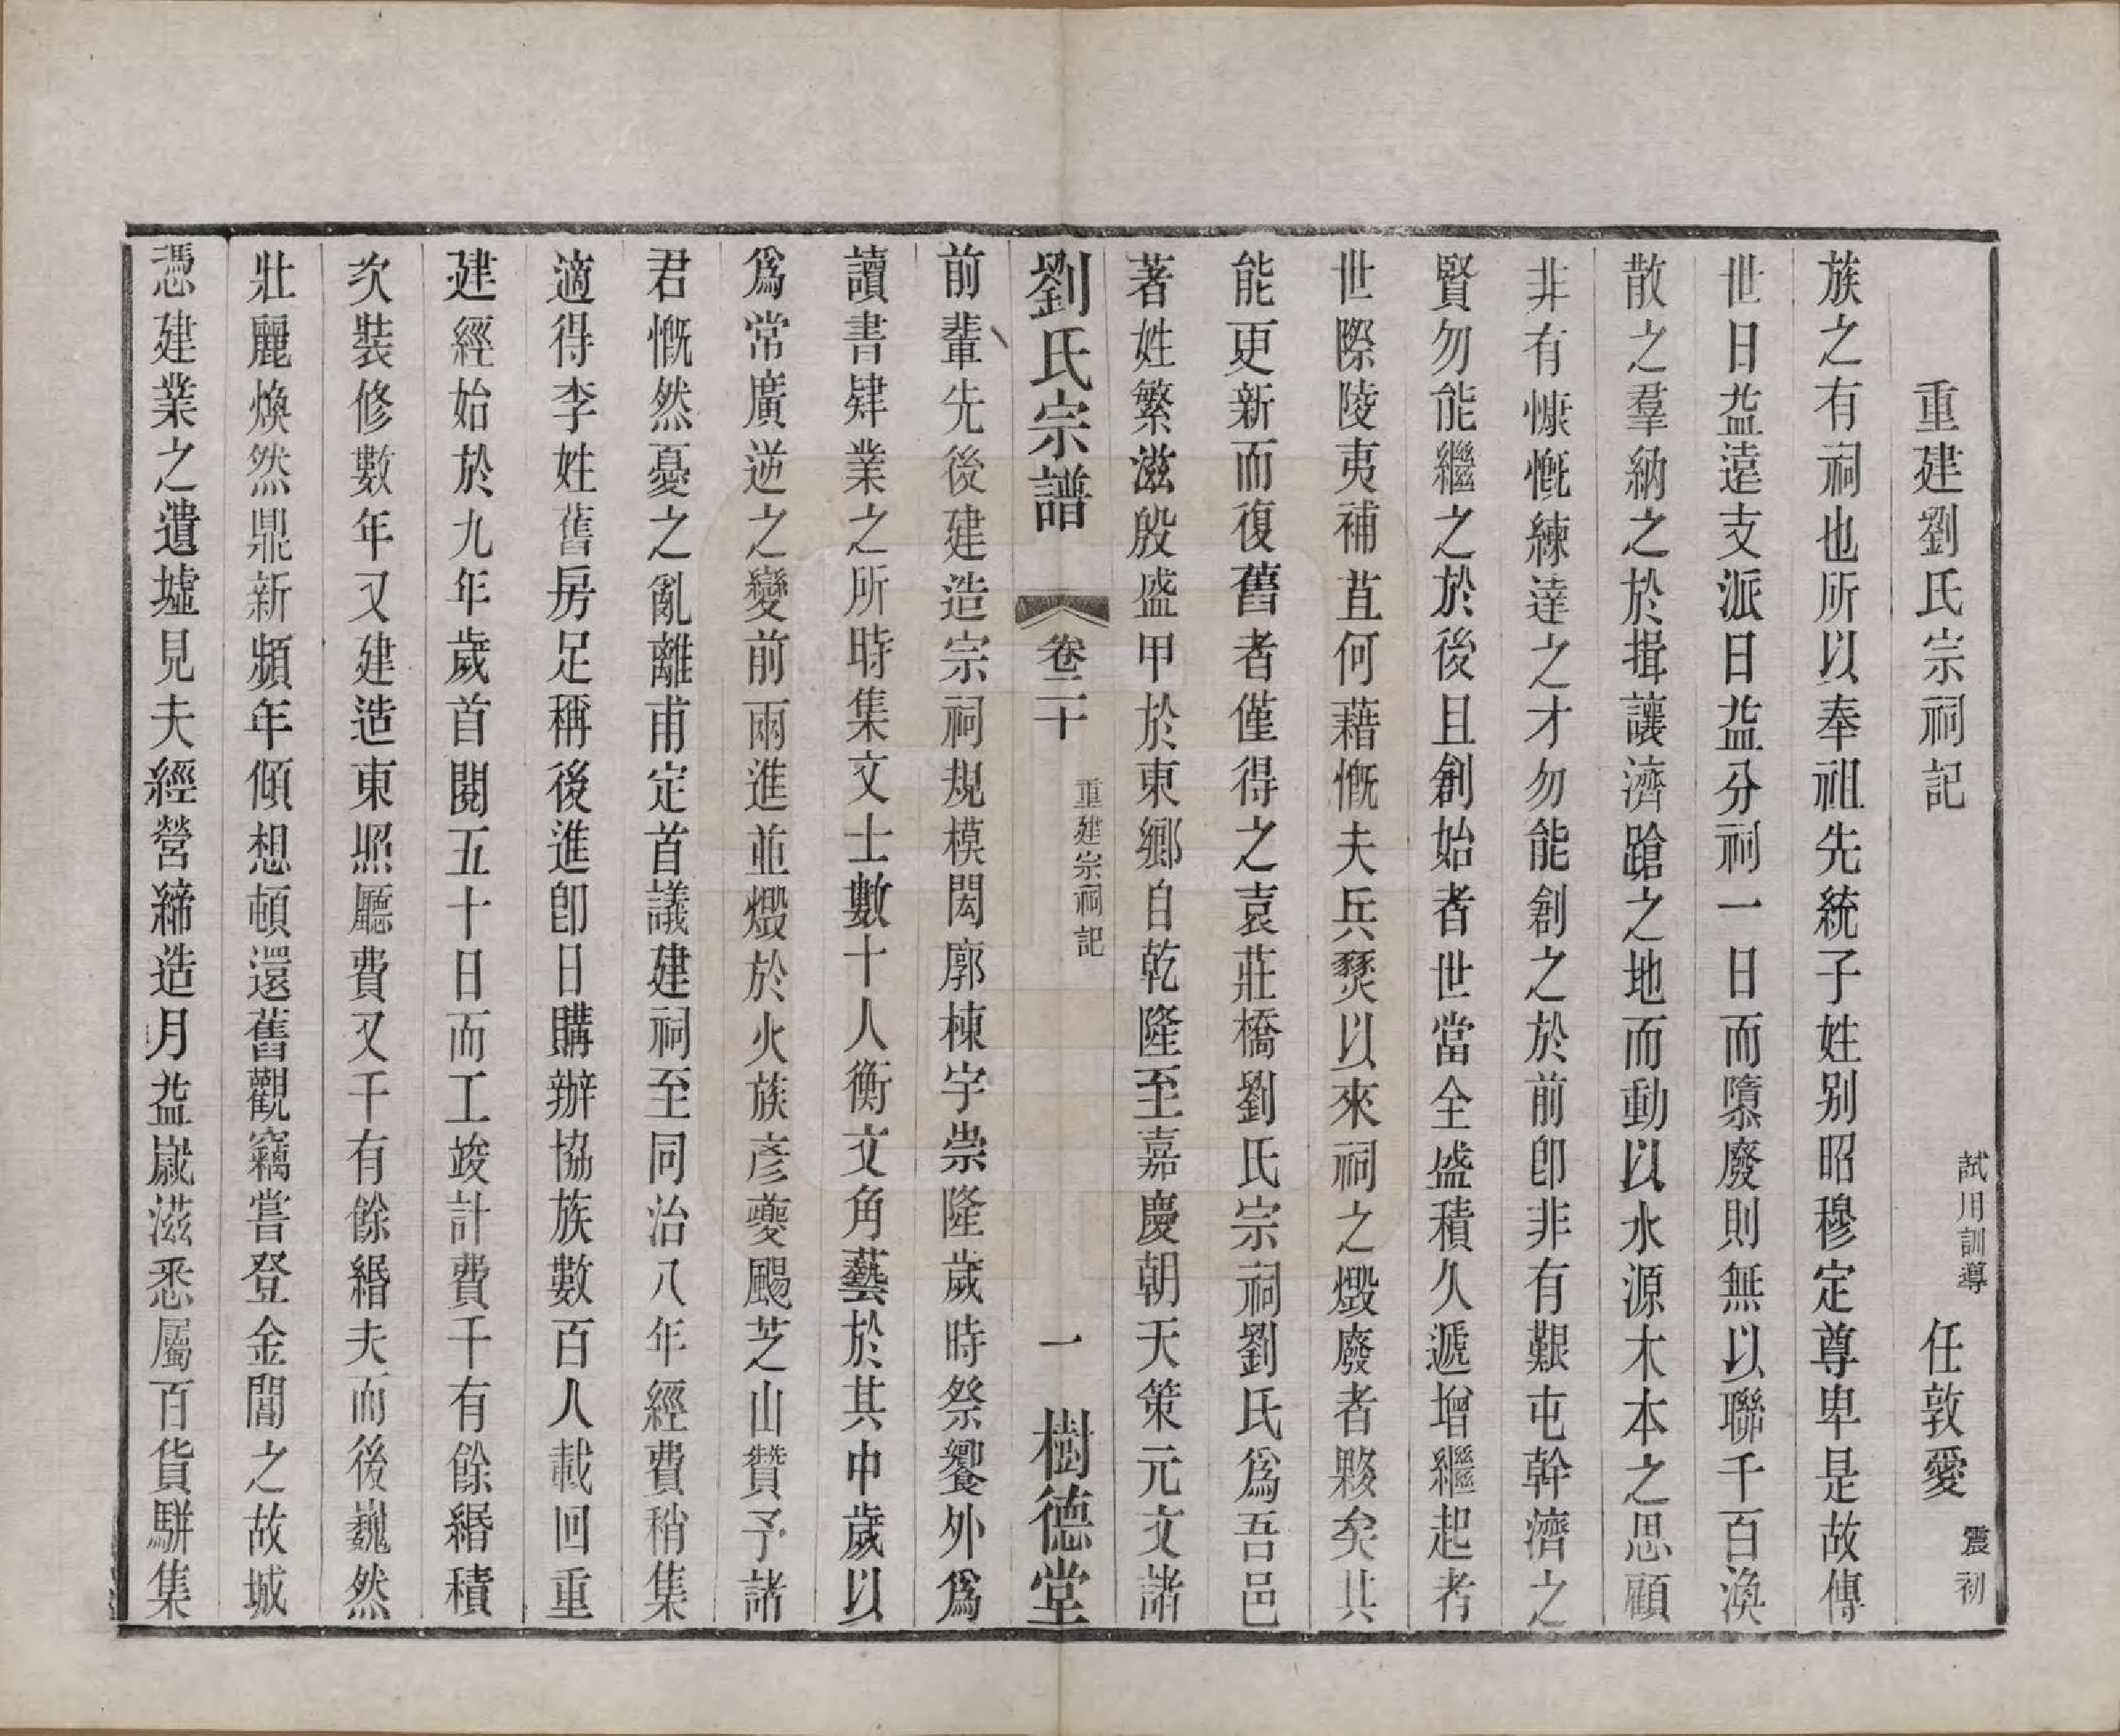 重建劉氏宗祠記
試用訓導 任敦愛 震初
族之有祠也所以奉祖先統子姓别昭穆定尊卑是故傳
世日益遠支派日益分祠一日而隳廢則無以聯千百渙
散之羣納之於揖讓濟蹌之地而動以水源木本之思顧
非有慷慨練達之才勿能創之於前卽非有艱屯幹濟之
賢勿能繼之於後且創始者世當全盛積久遞增繼起者
世際陵夷補苴何藉慨夫兵燹以來祠之燬廢者夥矣其
能更新而復舊者僅得之袁莊橋劉氏宗祠劉氏爲吾邑
著姓繁滋殷盛甲於東鄉自乾隆至嘉慶朝天策元文諸
劉氏宗譜 卷二十 重建宗祠記 一 樹德堂
前輩先後建造宗祠規模閎廓棟宇崇隆歲時祭饗外爲
讀書肄業之所時集文士數十人衡文角藝於其中歲以
爲常廣逆之變前兩進並燬於火族彥夔颺芝山贊予諸
君慨然憂之亂離甫定首議建祠至同治八年經費稍集
適得李姓舊房足稱後進卽日購辦協族數百人載回重
建經始於九年歲首閱五十日而工竣計費千有餘緡積
次裝修數年又建造東照廳費又千有餘緡夫而後巍然
壯麗煥然鼎新頻年傾想頓還舊觀竊嘗登金閶之故城
憑建業之遺墟見夫經營締造月益嵗滋悉屬百貨駢集